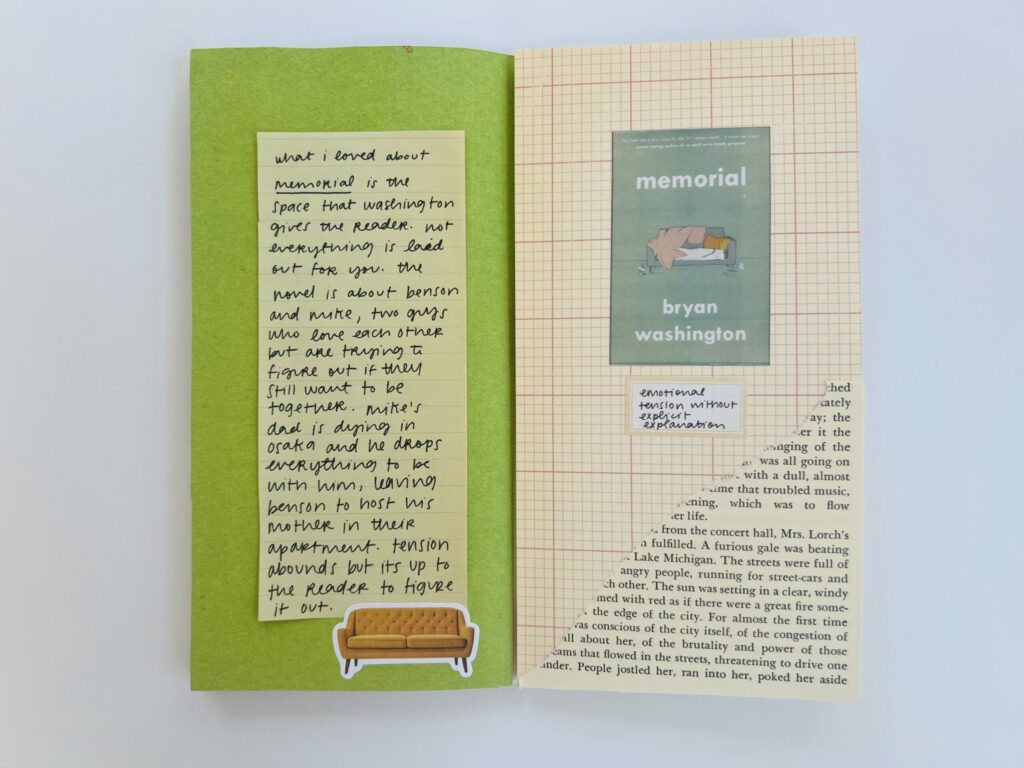 what i loved about
memorial is the
space that washington
gives the reader. not
everything is laid
out for you. the
novel is about benson
and mike, two guys
who love each other
but are trying to
figure out if they
still want to be
together. mike's
dad is dying in
osaka and he drops
everything to be
with him, leaving
benson to host his
mother in their
apartment. tension
abounds but its up to
the reader to figure
it out.
memorial
bryan
washington
emotional
tension without
explicit
explanation
ched
tately
ay; the
er it the
anging of the
was all going on
with a dull, almost
time that troubled music,
ening, which was to flow
er life.
from the concert hall, Mrs. Lorch's
fulfilled. A furious gale was beating
Lake Michigan. The streets were full of
angry people, running for street-cars and
ch other. The sun was setting in a clear, windy
med with red as if there were a great fire some-
the edge of the city. For almost the first time
was conscious of the city itself, of the congestion of
all about her, of the brutality and power of those
eams that flowed in the streets, threatening to drive one
under. People jostled her, ran into her, poked her aside